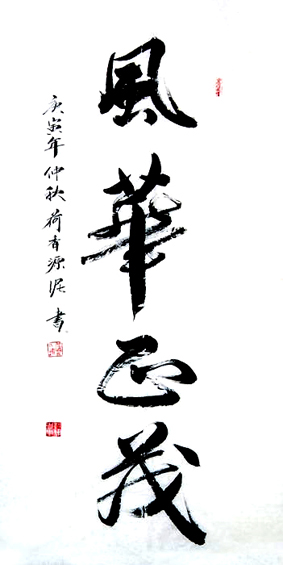 風華正茂
庚寅年仲秋荷香源泥書